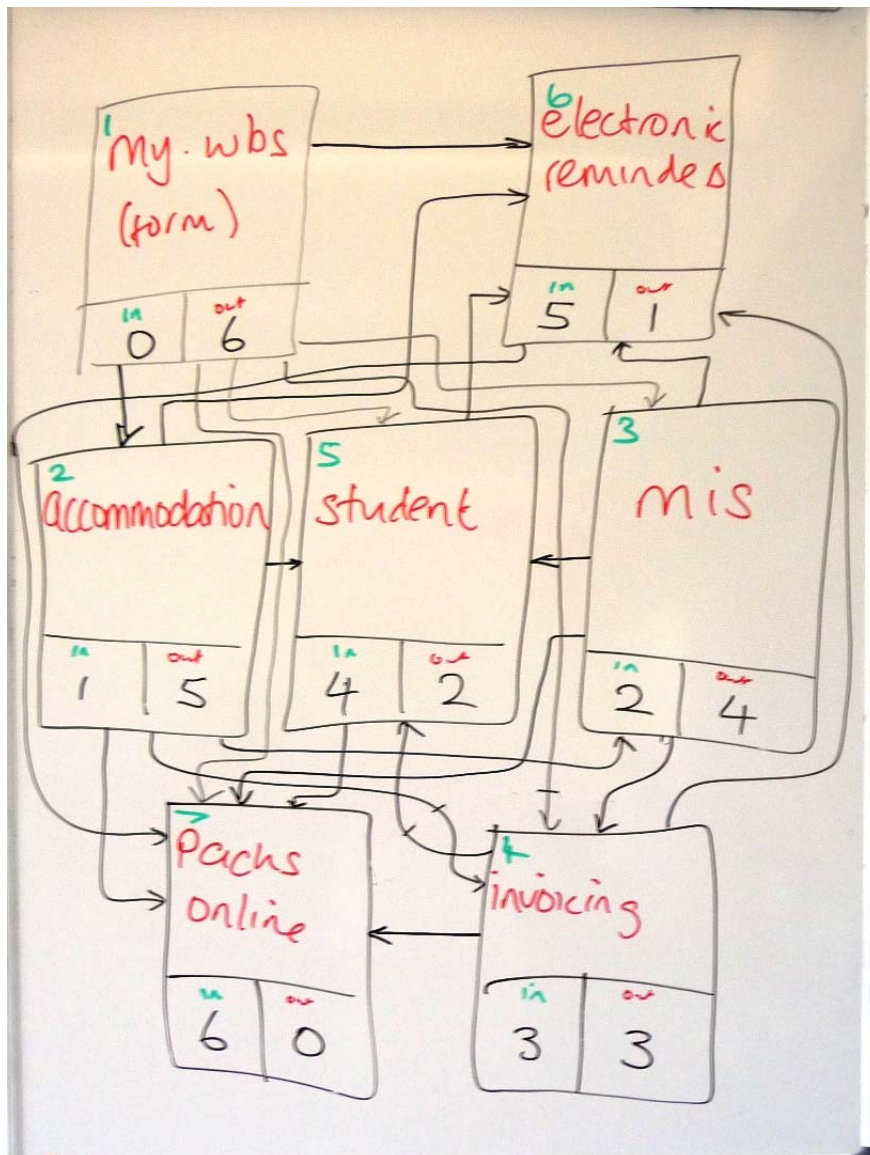 1
my.wbs
(form)
in out
0 6
6
electronic
reminders
in out
5 1
2
accommodation
in out
1 5
5
student
in out
4 2
3
mis
in out
2 4
7
Packs
online
in out
6 0
4
invoicing
in out
3 3